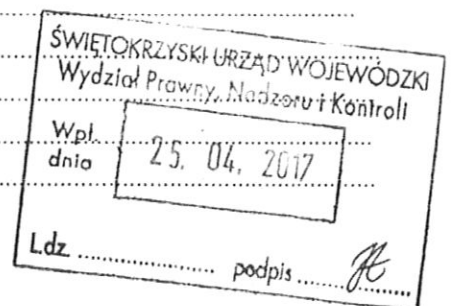 ŚWIĘTOKRZYSKI URZĄD WOJEWÓDZKI
Wydział Prawny, Nadzoru i Kontroli
Wpł.
dnia
25. 04. 2017
L.dz ................... podpis ..........